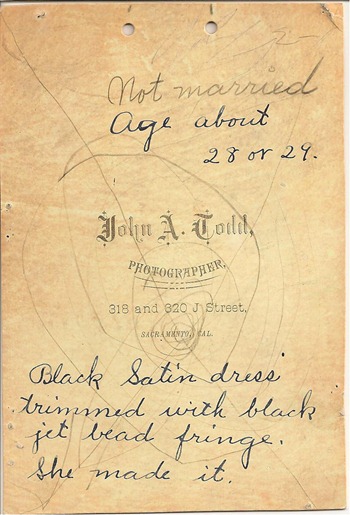 Not married
Age about
28 or 29.
John A. Todd,
PHOTOGRAPHER,
318 and 320 J Street,
SACRAMENTO, CAL.
Black Satin dress
trimmed with black
jet bead fringe.
She made it.